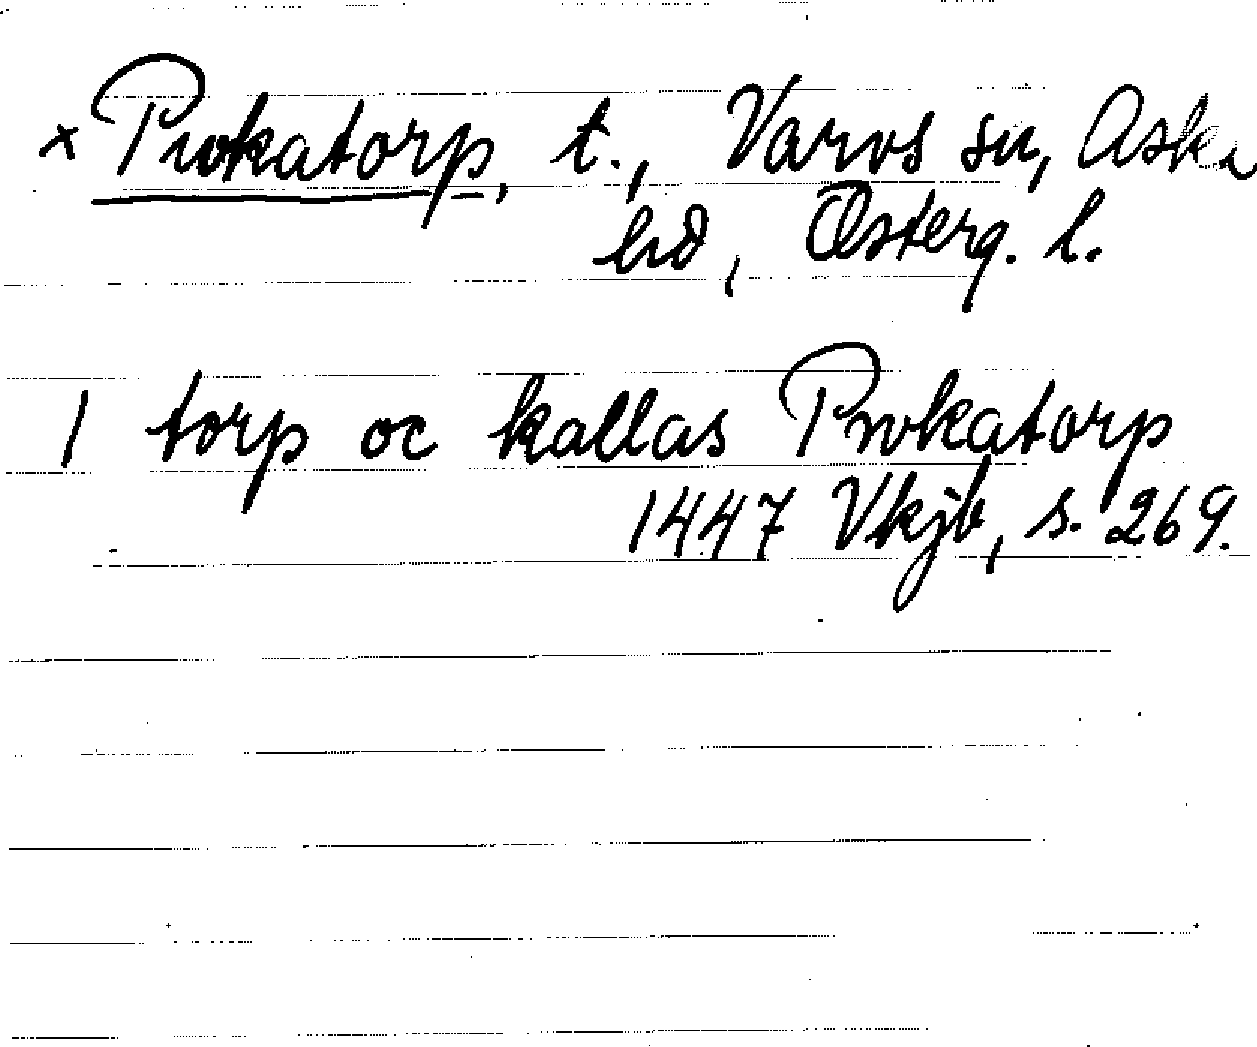 × Prokatorp, t., Varvs sn, Aska
hd, Österg. l.
1 torp oc kallas Prokatorp
1447 Vkjb, s. 269.